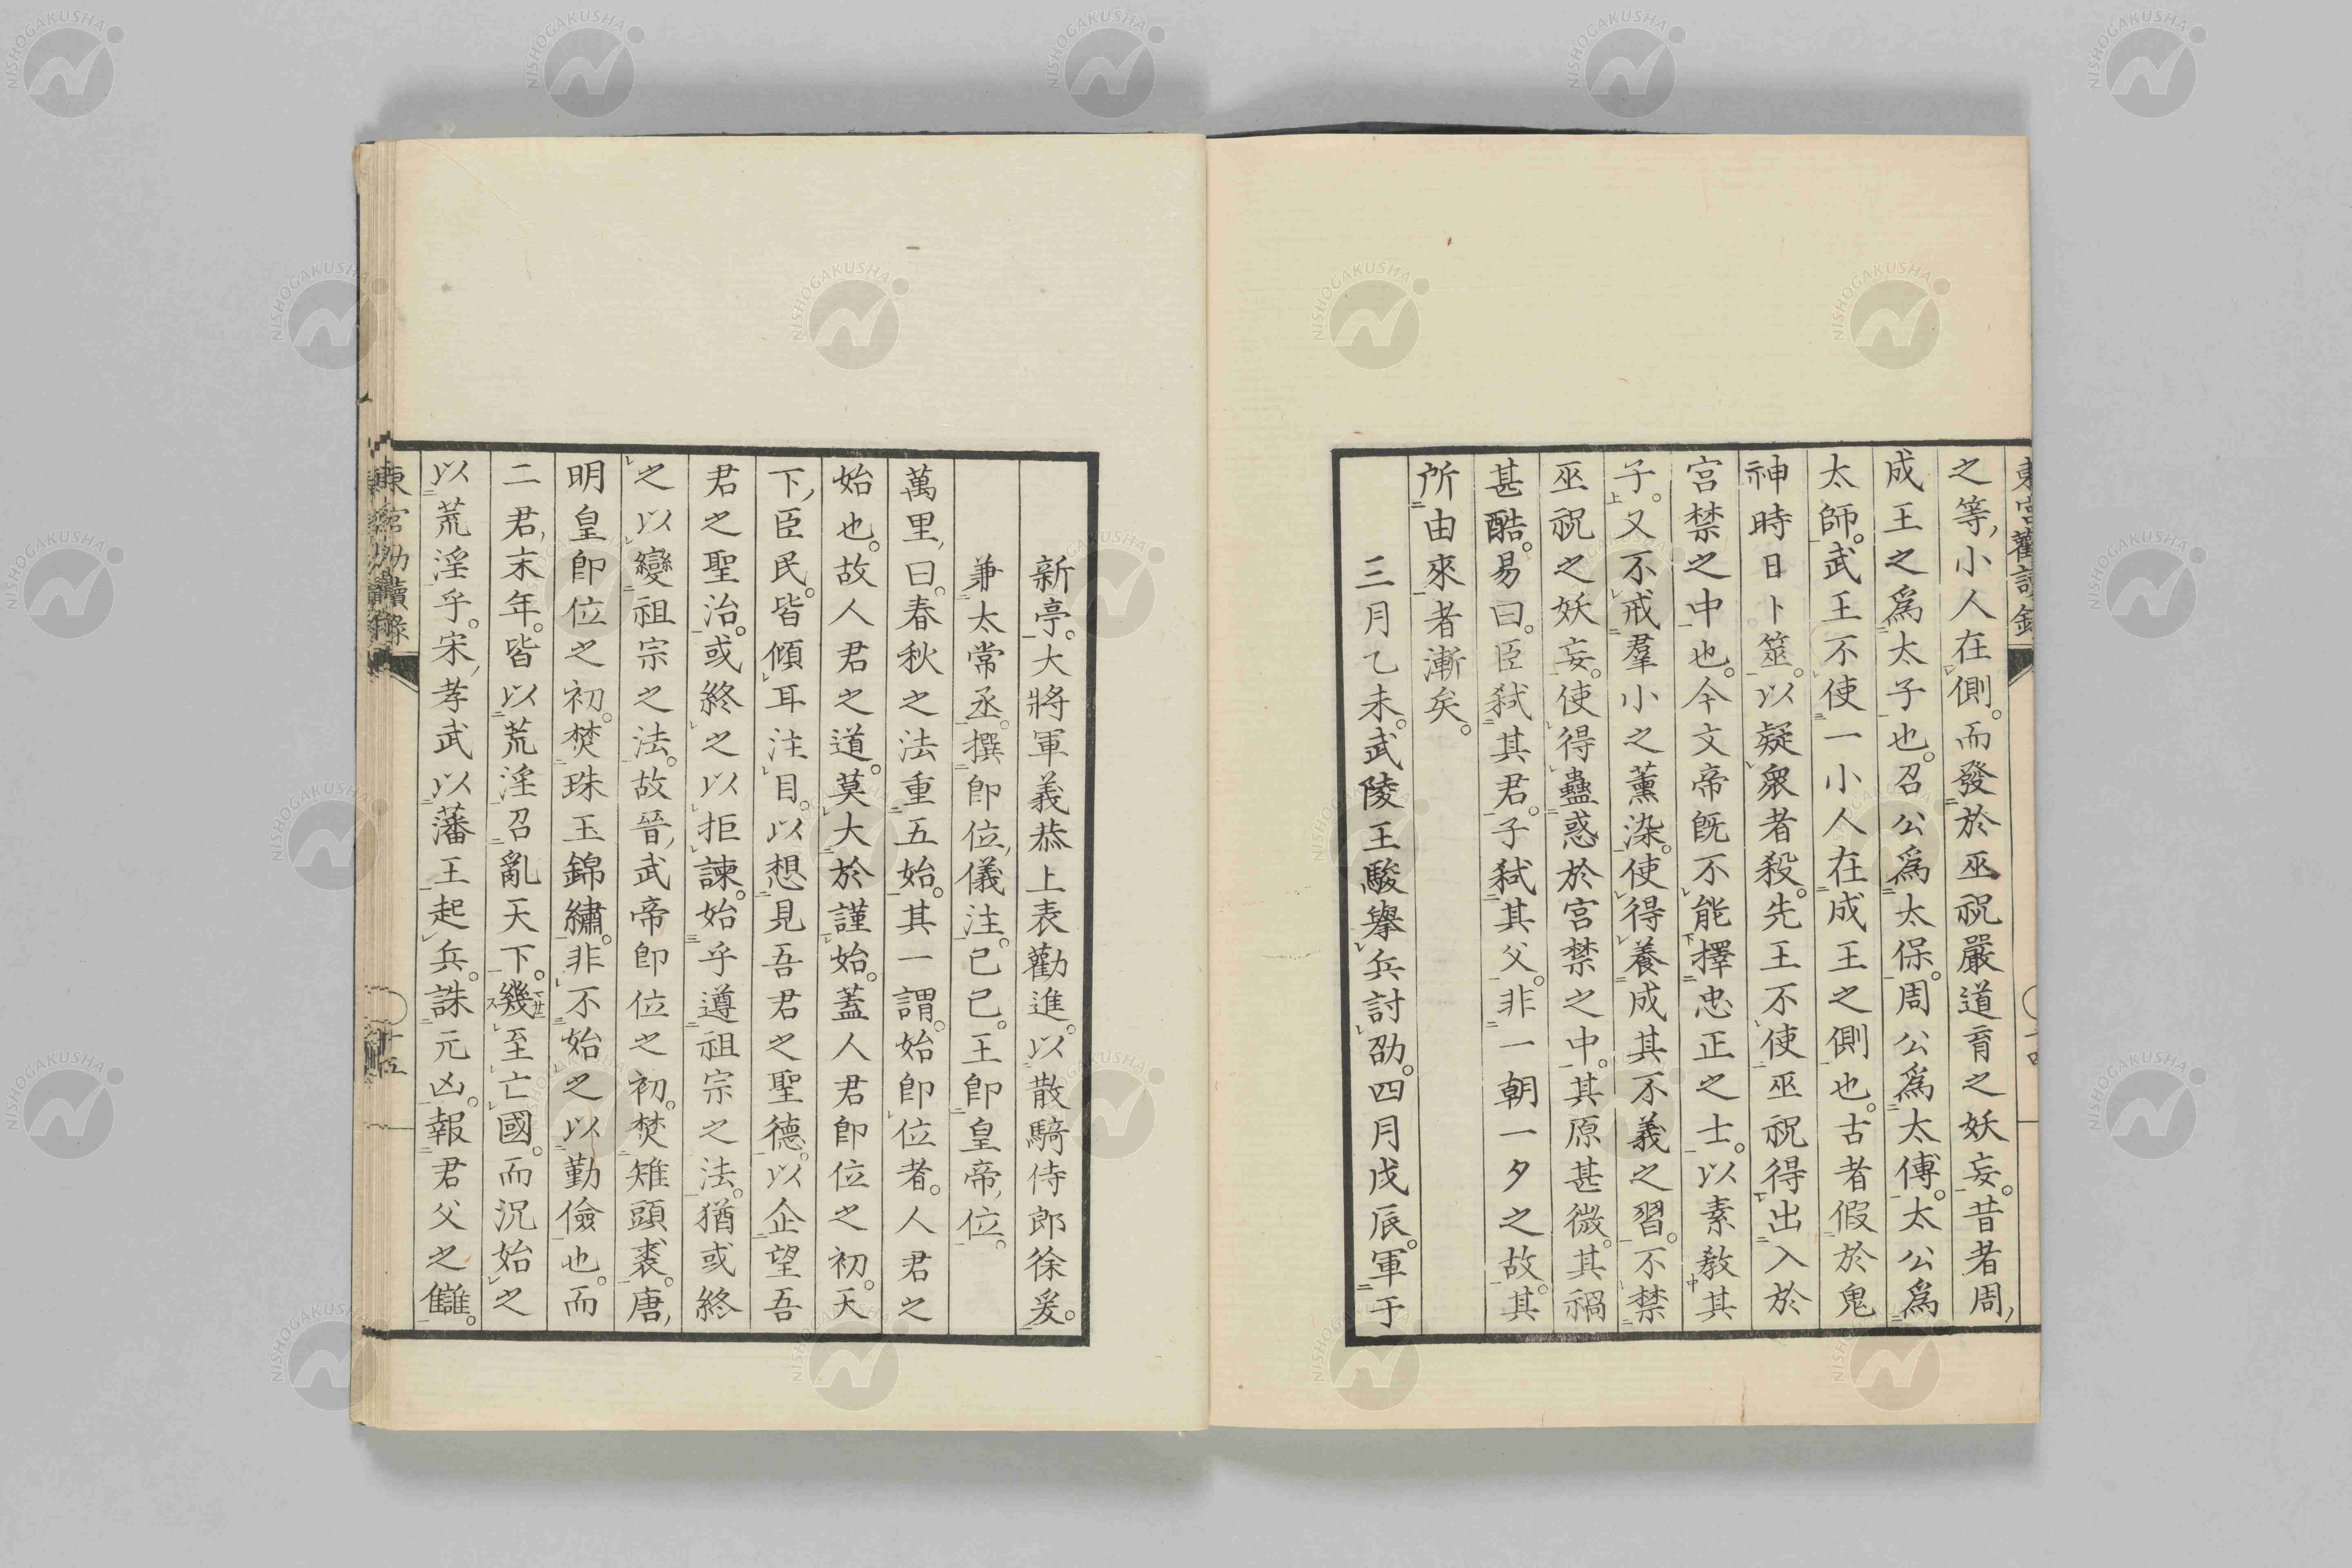 東宮勸讀錄
之等、小人在側。而發於巫祝嚴道育之妖妄。昔者周、
成王之爲太子也。召公爲太保。周公爲太傅。太公爲
太師。武王不使一小人在成王之側也。古者假於鬼
神時日卜筮。以疑衆者殺。先王不使巫祝得出入於
宮禁之中也。今文帝既不能擇忠正之士。以素敎其
子。又不戒羣小之薫染。使得養成其不義之習。不禁
巫祝之妖妄。使得蠱惑於宮禁之中。其原甚微。其禍
甚酷。易曰。臣弑其君。子弑其父。非一朝一夕之故。其
所由來者漸矣。
三月乙未。武陵王駿擧兵討劭。四月戊辰。軍于
新亭。大將軍義恭上表勸進。以散騎侍郎徐爰。
兼太常丞。撰卽位、儀注。己巳。王卽皇帝、位。
萬里、曰。春秋之法重五始。其一謂。始卽位者。人君之
始也。故人君之道。莫大於謹始。蓋人君卽位之初。天
下、臣民。皆傾耳注目。以想見吾君之聖德。以企望吾
君之聖治。或終之以拒諫。始乎遵祖宗之法。猶或終
之以變祖宗之法。故晉、武帝卽位之初。焚雉頭裘。唐、
明皇卽位之初。焚珠玉錦繡。非不始之以勤儉也。而
二君、末年。皆以荒淫召亂天下。幾至亡國。而況始之
以荒淫乎。宋、孝武以藩王起兵。誅元凶。報君父之讎。
東宮勸讀錄
十五